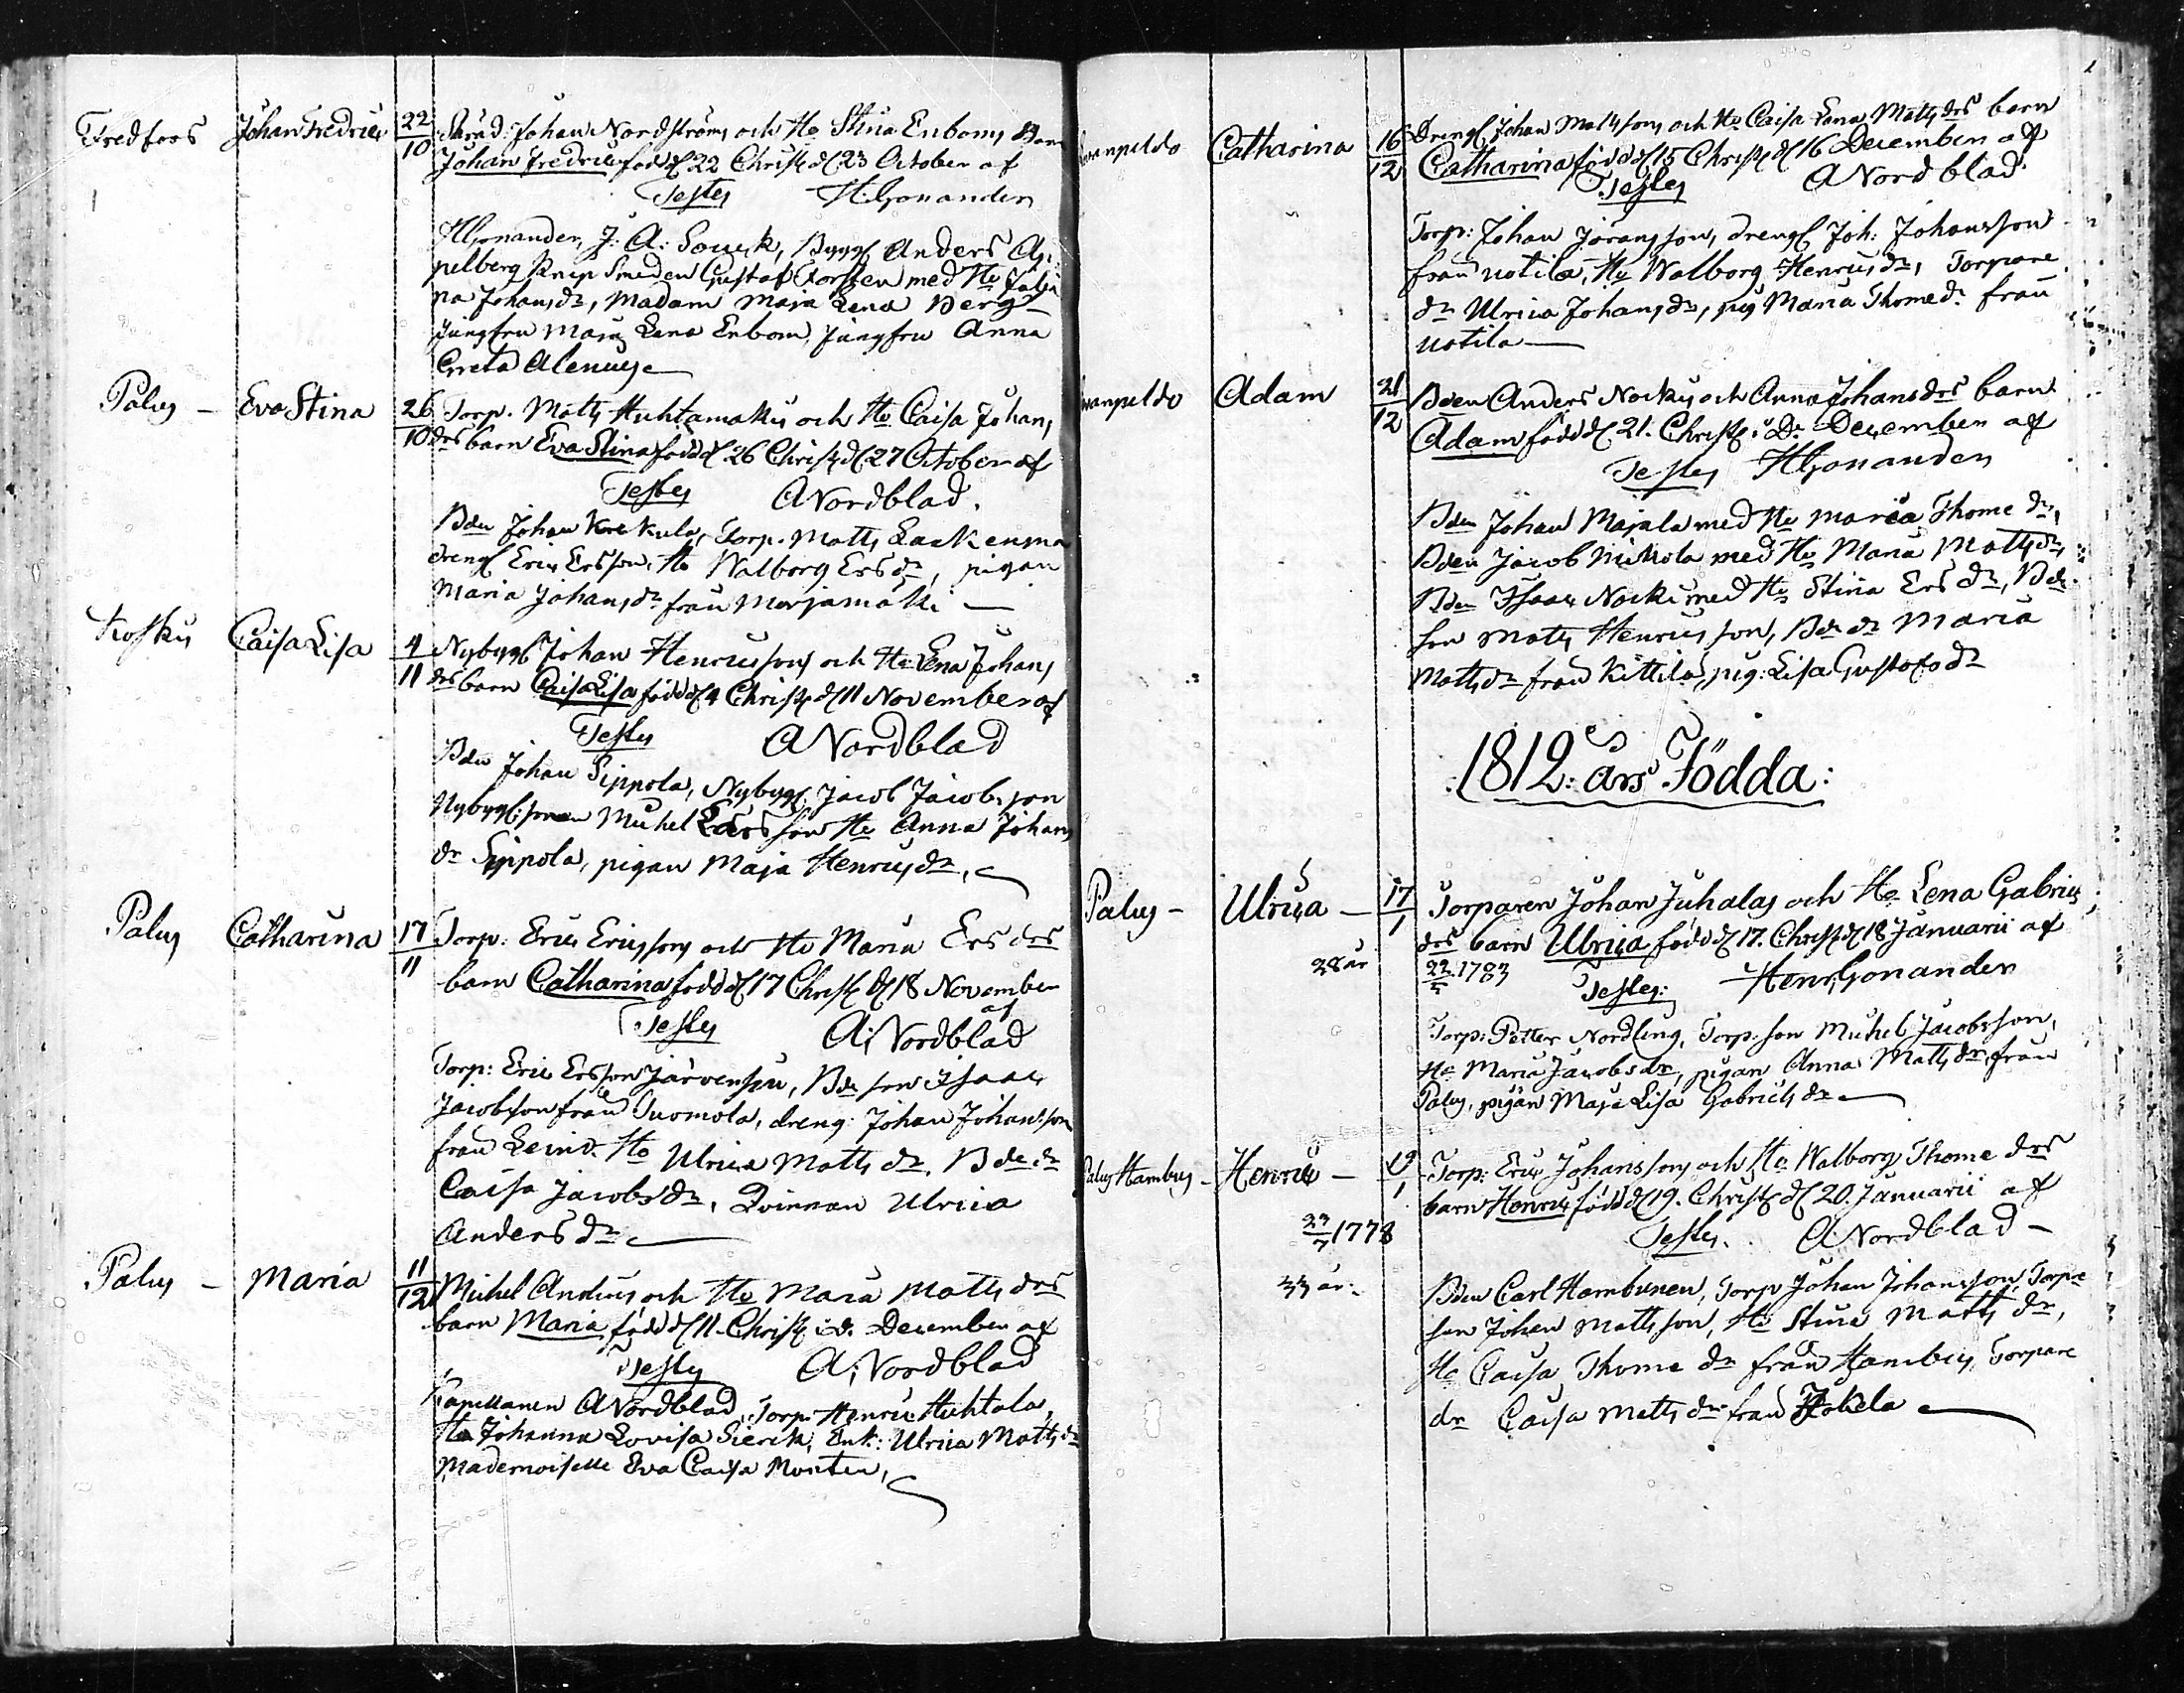 Fredfors Johan Fredric 22/10 Skräd: Johan Nordström och Ho Stina Enboms Barn
Johan Fredric född d 22 Christ d 23 October af
Testes H: Gonander
HGonander, J: A: Souck, Bygg Anders Ap
pelberg Knip Smeden Gustaf Forsten med Ho
na Johansdr, Madam Maja Lena Berg
Jungfru Maja Lena Enbom, Jungfru Anna
Greta Alenius
Palus – Eva Stina 26/10 Torp. Matts Huhtamakis och Ho Caisa Johans
drs barn Eva Stina född d 26 Christ d 27 October af
Testes ANordblad.
Bdn Johan Torp. Matts
dreng Eric Ersson, Ho Walborg Ersdr, pigan
Maria Johansdr från Merjamäki —
Koskis Caisa Lisa 4/11 Nybygg Johan Henricssons och Ho Lena Johans
drs barn Caisa Lisa född d 4 Christ d 11 November af
Testes ANordblad
Bdn Johan Sippola, Nybygg Jacob Jacobsson
Nybygg: sonen Michel Larsson Ho Anna Johans
dr Sippola, pigan Maja Henricsdr,
Palus Catharina 17/11 Torp: Eric Ericssons och Ho Maria Ers drs
barn Catharina född d 17 Christ d 18 November
af
Testes A: Nordblad
Torp: Eric Ersson Järvenspä, Bde son Isaac
Jacobsson från Tuomola, dreng: Johan Johansson
från Ho Ulrica Matts dr. Bde dr
Caisa Jacobsdr, Qvinnan Ulrica
Anders dr
Palus – Maria 11/12 Michel Anderssons och Ho Maria Matts drs
barn Maria född d 11. Christ i.d. December af
Testes A: Nordblad
Kapellanen ANordblad, Torp: Henric Huhtala,
Ho Johanna Lovisa Sierck, Enk: Ulrica Matts dr
Mademoiselle Eva Caisa Montin,
Catharina 16/12 Dreng Johan Mattssons och Ho Caisa Lena Matts drs barn
Catharina född d 15 Christ d 16 December af
Testes ANordblad.
Torp: Johan Jöransson, dreng Joh: Johansson
från uotila, Ho Walborg Henricsdr, Torpare
dr Ulrica Johansdr, pig Maria Thomedr från
uotila —
Adam 21/12 Bden Anders Nockus och Anna Johansdrs barn
Adam född d. 21. Christ. i.D. December af
Testes HGonander
Bden Johan Majala med Ho Maria Thome dr,
Bden Jacob Mickola med Ho Maria Matts dr,
Bden Isaac Nocki med Ho Stina Ers dr, Bde
son Matts Henricsson, Bde dr Maria
Matts dr från Kittilä, pig: Lisa Gustafsdr
1812: års Födda:
Palus – Ulrica – 17/1 Torparen Johan Juhalas och Ho Lena Gabriels
drs barn Ulrica född d 17. Christ d 18 Januarii af
28 år 1783 Testes: Henr: Gonander
Torp: Petter Nordling, Torp: son Michel Jacobsson,
Ho Maria Jacobsdr, pigan Anna Matts dr från
Palus, pigan Maja Lisa Gabriels dr
Palus Hambus – Henric – 19/1 Torp: Eric Johanssons och Ho Walborg Thome drs
barn Henric född d 19. Christ d 20. Januarii af
23/7 1778 Testes. ANordblad –
33 år. Bden Carl Hambunen, Torp Johan Johansson, Torpe
son Johan Mattsson, Ho Stina Matts dr,
Ho Caisa Thome dr från Hambus, Torpare
dr Caisa Matts dr från